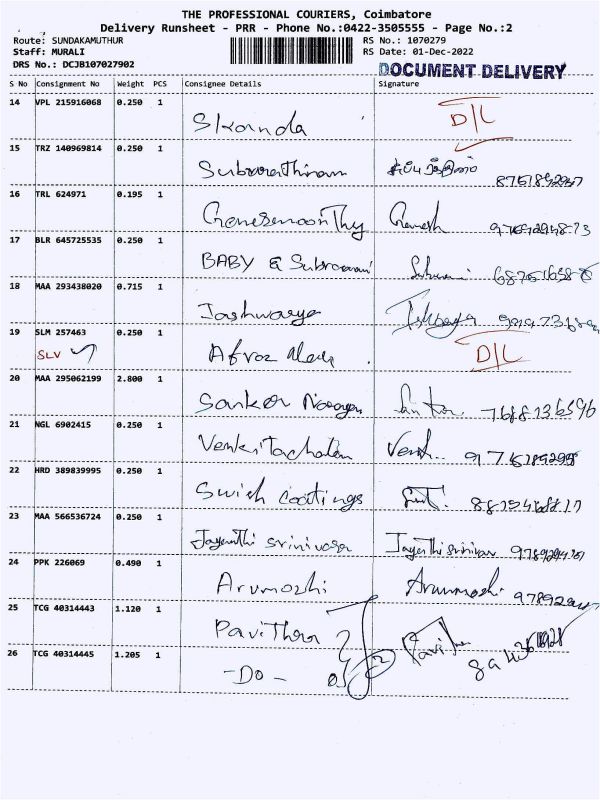 THE PROFESSIONAL COURIERS, Coimbatore
Delivery Runsheet - PRR - Phone No.:0422-3505555 - Page No.:2
Route: SUNDAKAMUTHUR RS No.: 1070279
Staff: MURALI RS Date: 01-Dec-2022
DRS No.: DCJB107027902 DOCUMENT DELIVERY
S No Consignment No Weight PCS Consignee Details Signature
14 VPL 215916068 0.250 1 Skanda D/L
15 TRZ 140969814 0.250 1 Subbarathinam
16 TRL 624971 0.195 1 Ganesmoorthy Ganesh
17 BLR 645725535 0.250 1 BABY & Subramani
18 MAA 293438020 0.715 1 Jashwarya
19 SLM 257463 0.250 1 Afroz D/L
SLV
20 MAA 295062199 2.800 1 Sanker Narayan
21 NGL 6902415 0.250 1 Venkitachalam
22 HRD 389839995 0.250 1 Swish Coatings
23 MAA 566536724 0.250 1 Jayanthi Srinivasa Jayanthi
24 PPK 226069 0.490 1 Arumozhi
25 TCG 40314443 1.120 1 Pavithra
26 TCG 40314445 1.205 1 -Do-